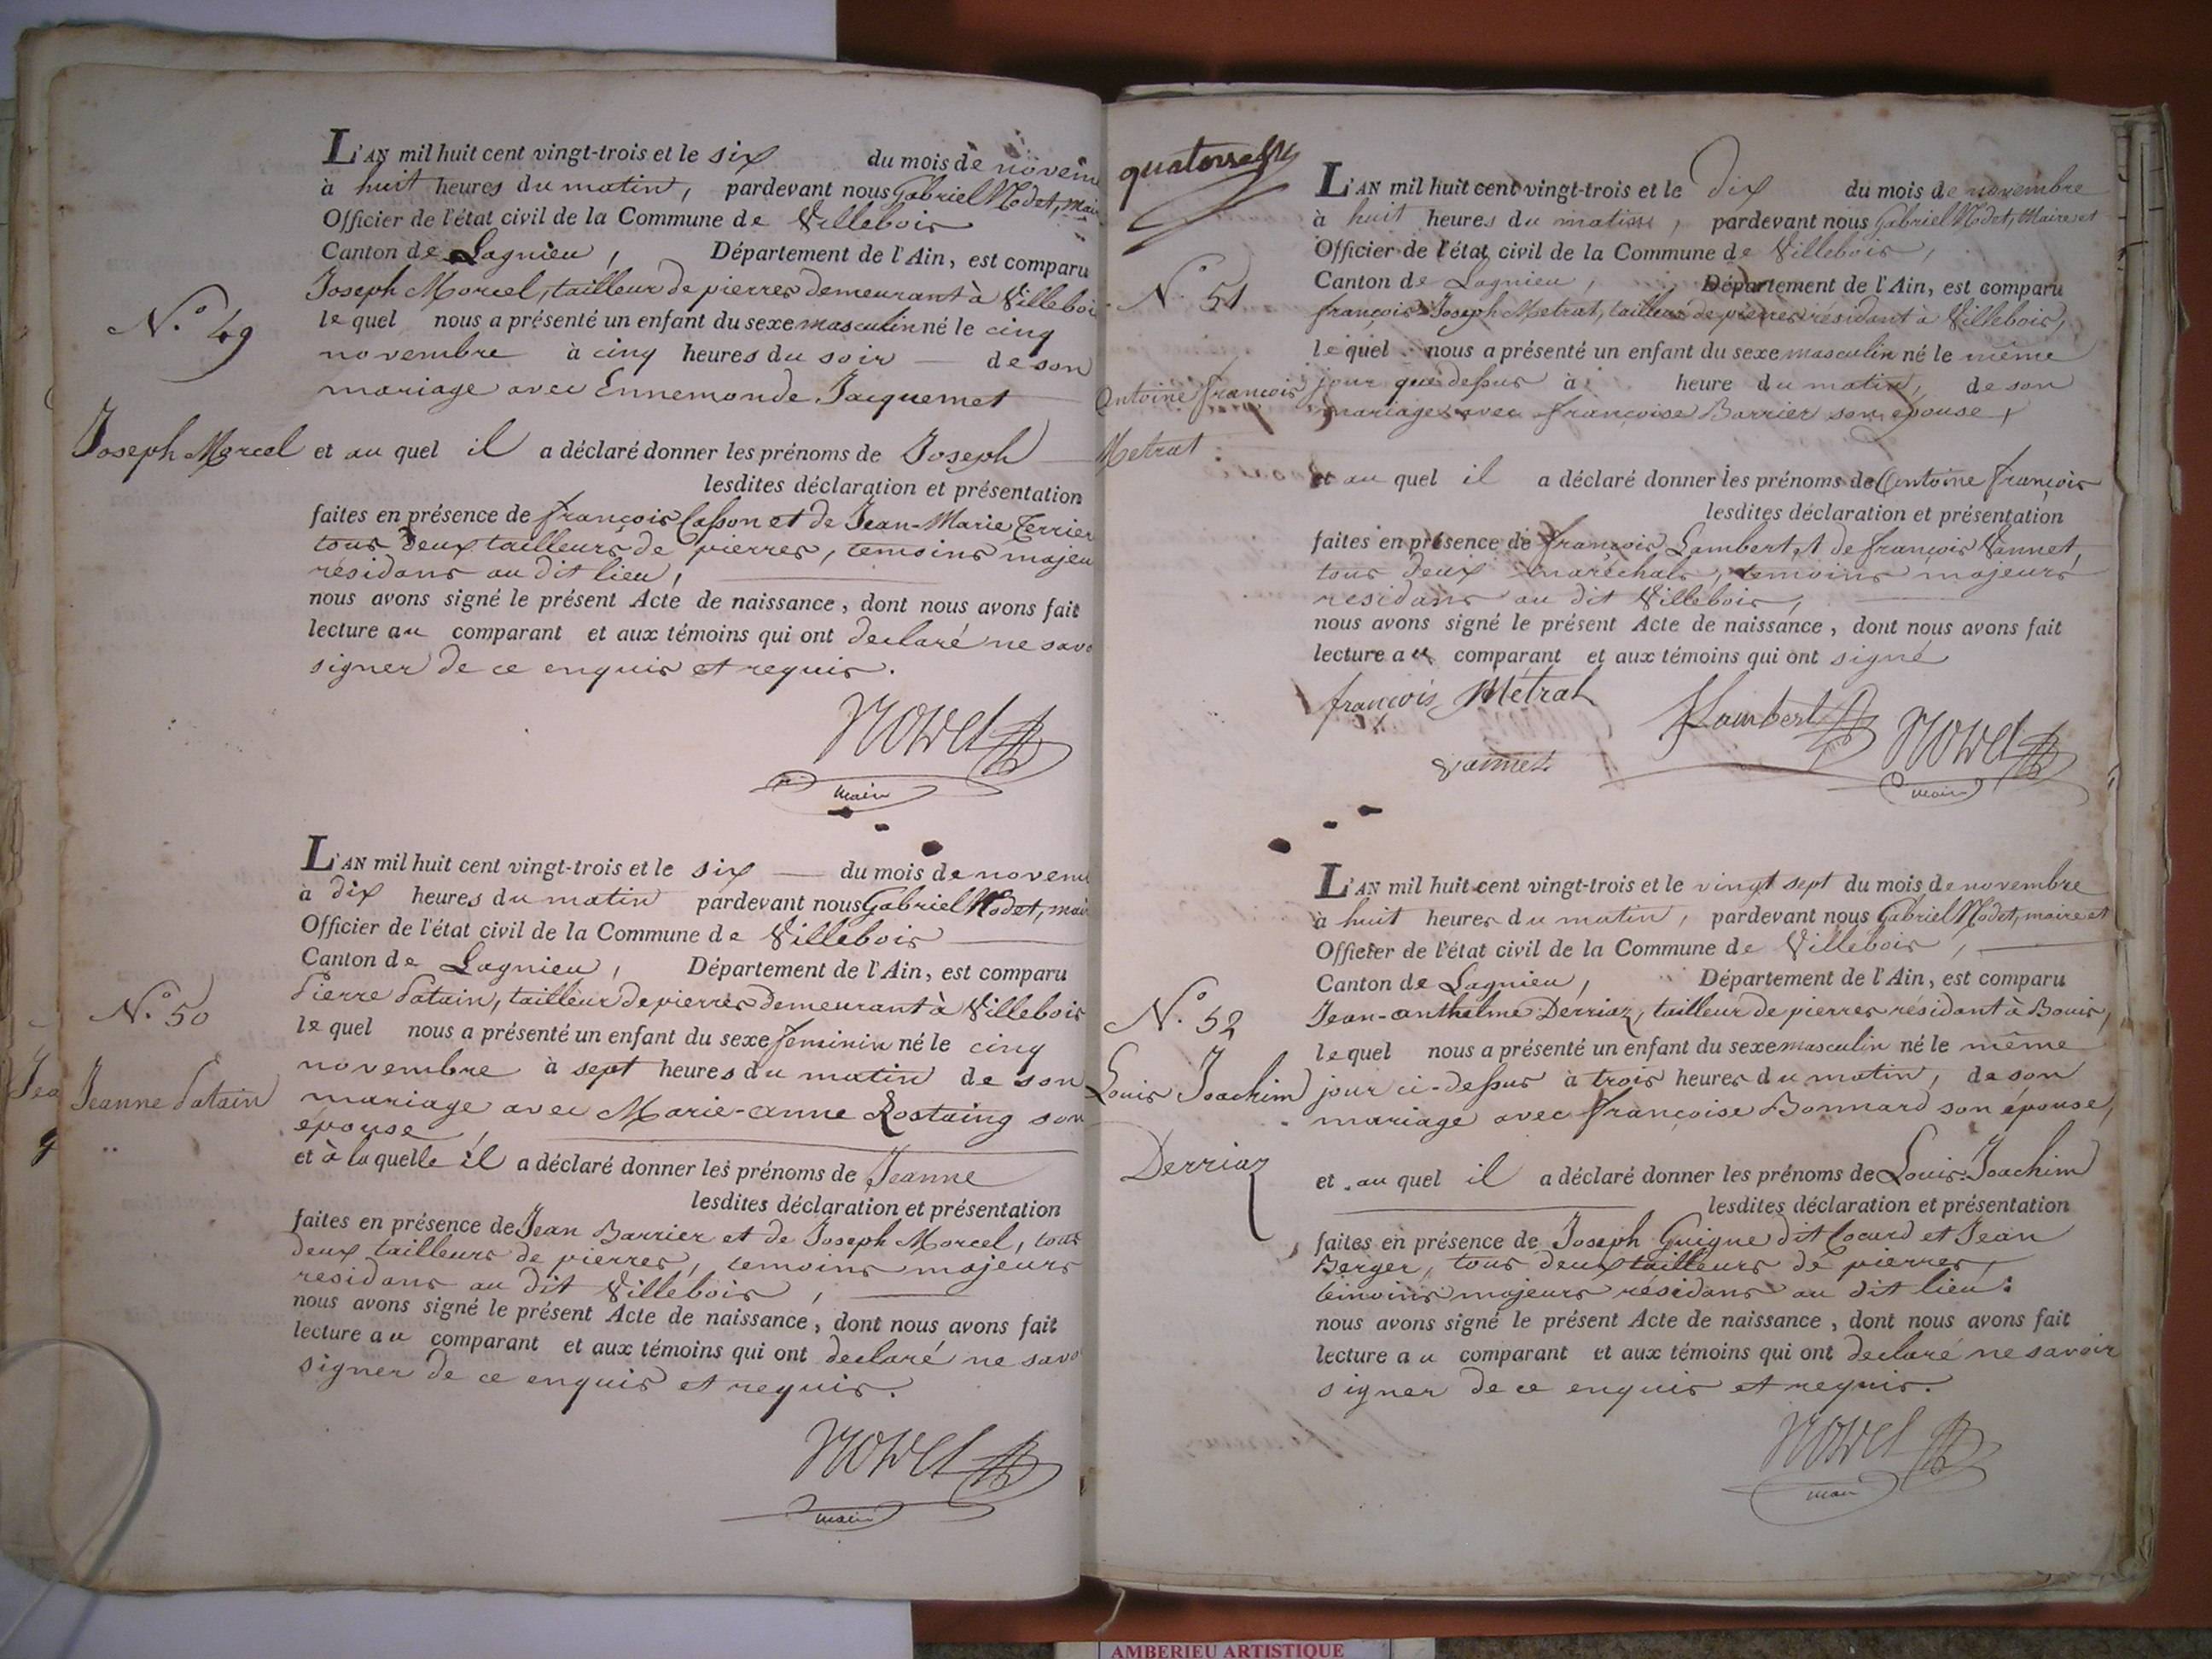 L'AN mil huit cent vingt-trois et le six du mois de novem
à huit heures du matin, pardevant nous Gabriel Nodet, mai
Officier de l'état civil de la Commune de Villebois
Canton de Lagnieu, Département de l'Ain, est comparu
Joseph Morcel, tailleur de pierres demeurant à Villeboi
N.º 49
le quel nous a présenté un enfant du sexe masculin né le cinq
novembre à cinq heures du soir de son
mariage avec Ennemonde Jacquemet
Joseph Morcel
et au quel il a déclaré donner les prénoms de Joseph
lesdites déclaration et présentation
faites en présence de françois Casson et de Jean-Marie Terrier
tous deux tailleurs de pierres, temoins majeu
résidans au dit lieu,
nous avons signé le présent Acte de naissance, dont nous avons fait
lecture au comparant et aux témoins qui ont declaré ne savo
signer de ce enquis et requis.
Nodet
maire
L'AN mil huit cent vingt-trois et le six du mois de novem
à dix heures du matin pardevant nous Gabriel Nodet, mai
Officier de l'état civil de la Commune de Villebois
Canton de Lagnieu, Département de l'Ain, est comparu
Pierre Patain, tailleur de pierres demeurant à Villebois
N.º 50
le quel nous a présenté un enfant du sexe feminin né le cinq
novembre à sept heures du matin de son
Jea
Jeanne Patain
mariage avec Marie-anne Rostaing son
épouse,
et à la quelle il a déclaré donner les prénoms de Jeanne
lesdites déclaration et présentation
faites en présence de Jean Barrier et de Joseph Morcel, tous
deux tailleurs de pierres, temoins majeurs
residans au dit Villebois,
nous avons signé le présent Acte de naissance, dont nous avons fait
lecture au comparant et aux témoins qui ont declaré ne savo
signer de ce enquis et requis.
Nodet
maire
L'AN mil huit cent vingt-trois et le dix du mois de novembre
à huit heures du matin, pardevant nous Gabriel Nodet, Maire et
Officier de l'état civil de la Commune de Villebois,
Canton de Lagnieu, Département de l'Ain, est comparu
N.º 51
françois-Joseph Metrat, tailleur de pierres résidant à Villebois,
le quel nous a présenté un enfant du sexe masculin né le même
jour que dessus à heure du matin, de son
Antoine françois
mariage avec françoise Barrier son épouse,
Metrat
et au quel il a déclaré donner les prénoms de Antoine françois
lesdites déclaration et présentation
faites en présence de françois Lambert et de françois Vannet,
tous deux maréchals, temoins majeurs
residans au dit Villebois,
nous avons signé le présent Acte de naissance, dont nous avons fait
lecture au comparant et aux témoins qui ont signé
françois Métrat
Lambert
Nodet
vannet
maire
L'AN mil huit cent vingt-trois et le vingt sept du mois de novembre
à huit heures du matin, pardevant nous Gabriel Nodet, maire et
Officier de l'état civil de la Commune de Villebois,
Canton de Lagnieu, Département de l'Ain, est comparu
N.º 52
Jean-anthelme Derriaz, tailleur de pierres résidant à Bouis,
le quel nous a présenté un enfant du sexe masculin né le même
Louis Joachim
jour ci-dessus à trois heures du matin, de son
mariage avec françoise Bonnard son épouse,
Derriaz
et au quel il a déclaré donner les prénoms de Louis-Joachim
lesdites déclaration et présentation
faites en présence de Joseph Guigne dit Cocard et Jean
Berger, tous deux tailleurs de pierres,
témoins majeurs résidans au dit lieu:
nous avons signé le présent Acte de naissance, dont nous avons fait
lecture au comparant et aux témoins qui ont declaré ne savoir
signer de ce enquis et requis.
Nodet
maire
AMBERIEU ARTISTIQUE